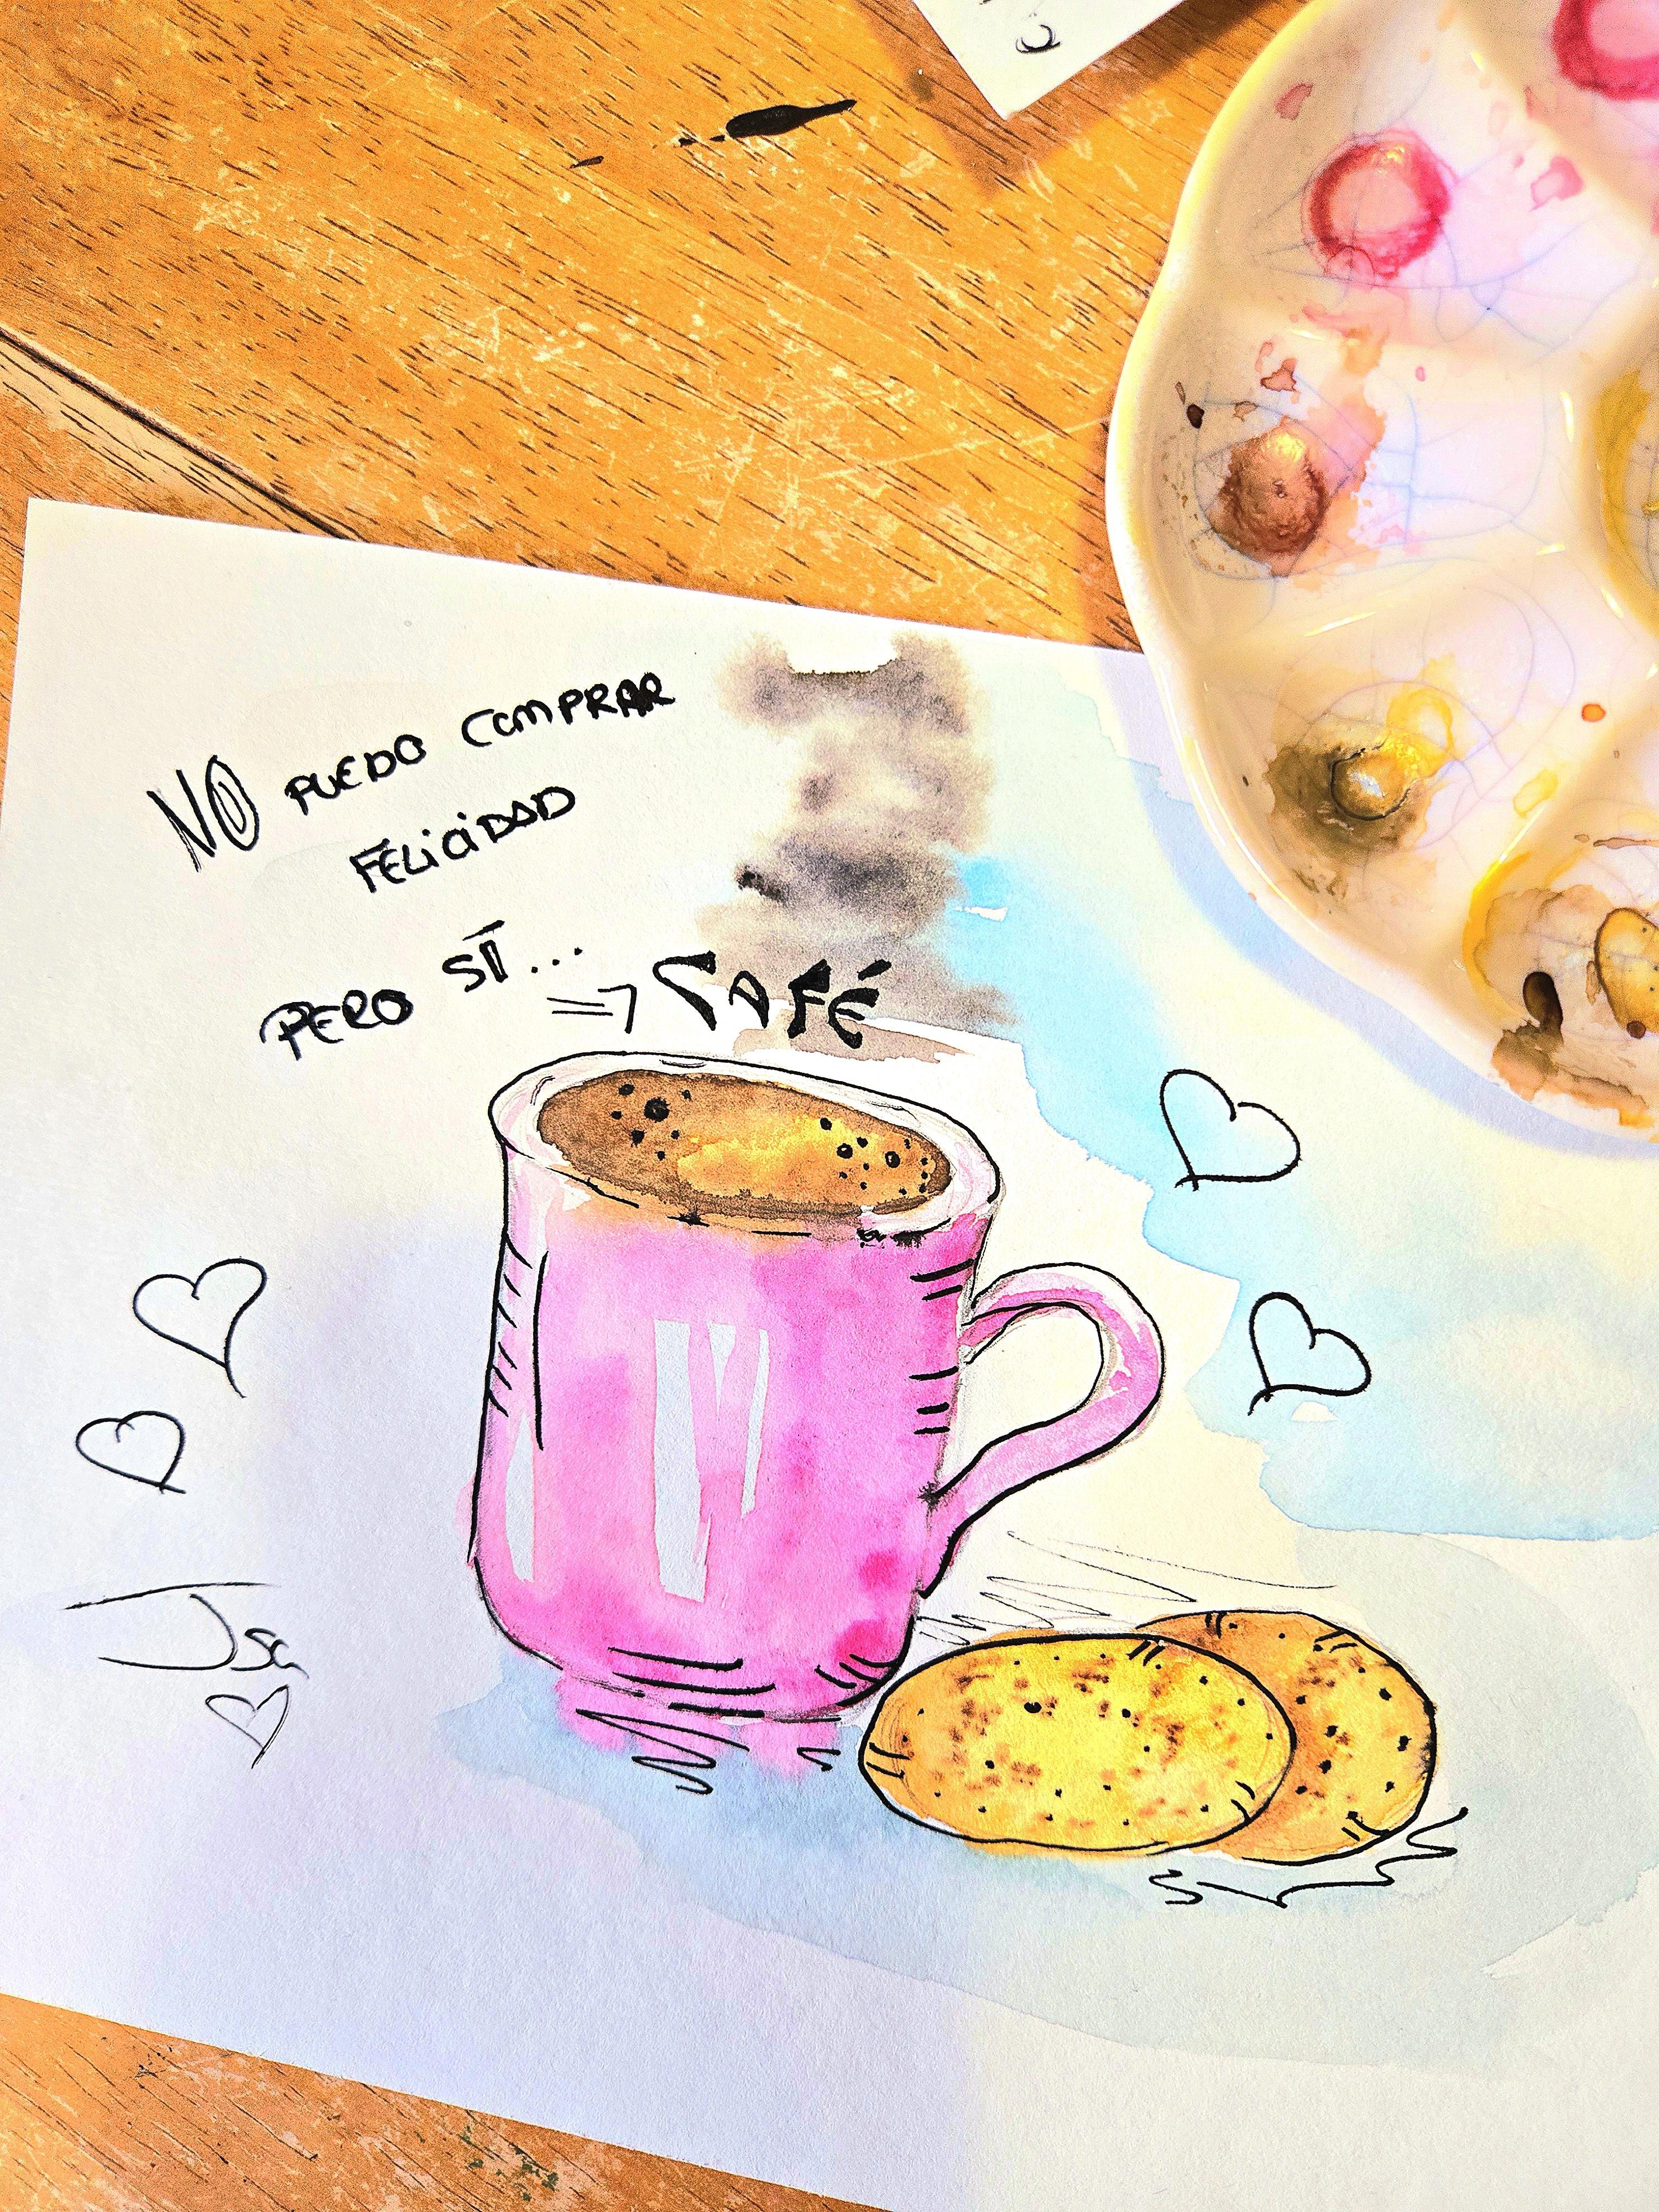 NO PUEDO COMPRAR
FELICIDAD
PERO SÍ...
=> CAFÉ
Isa